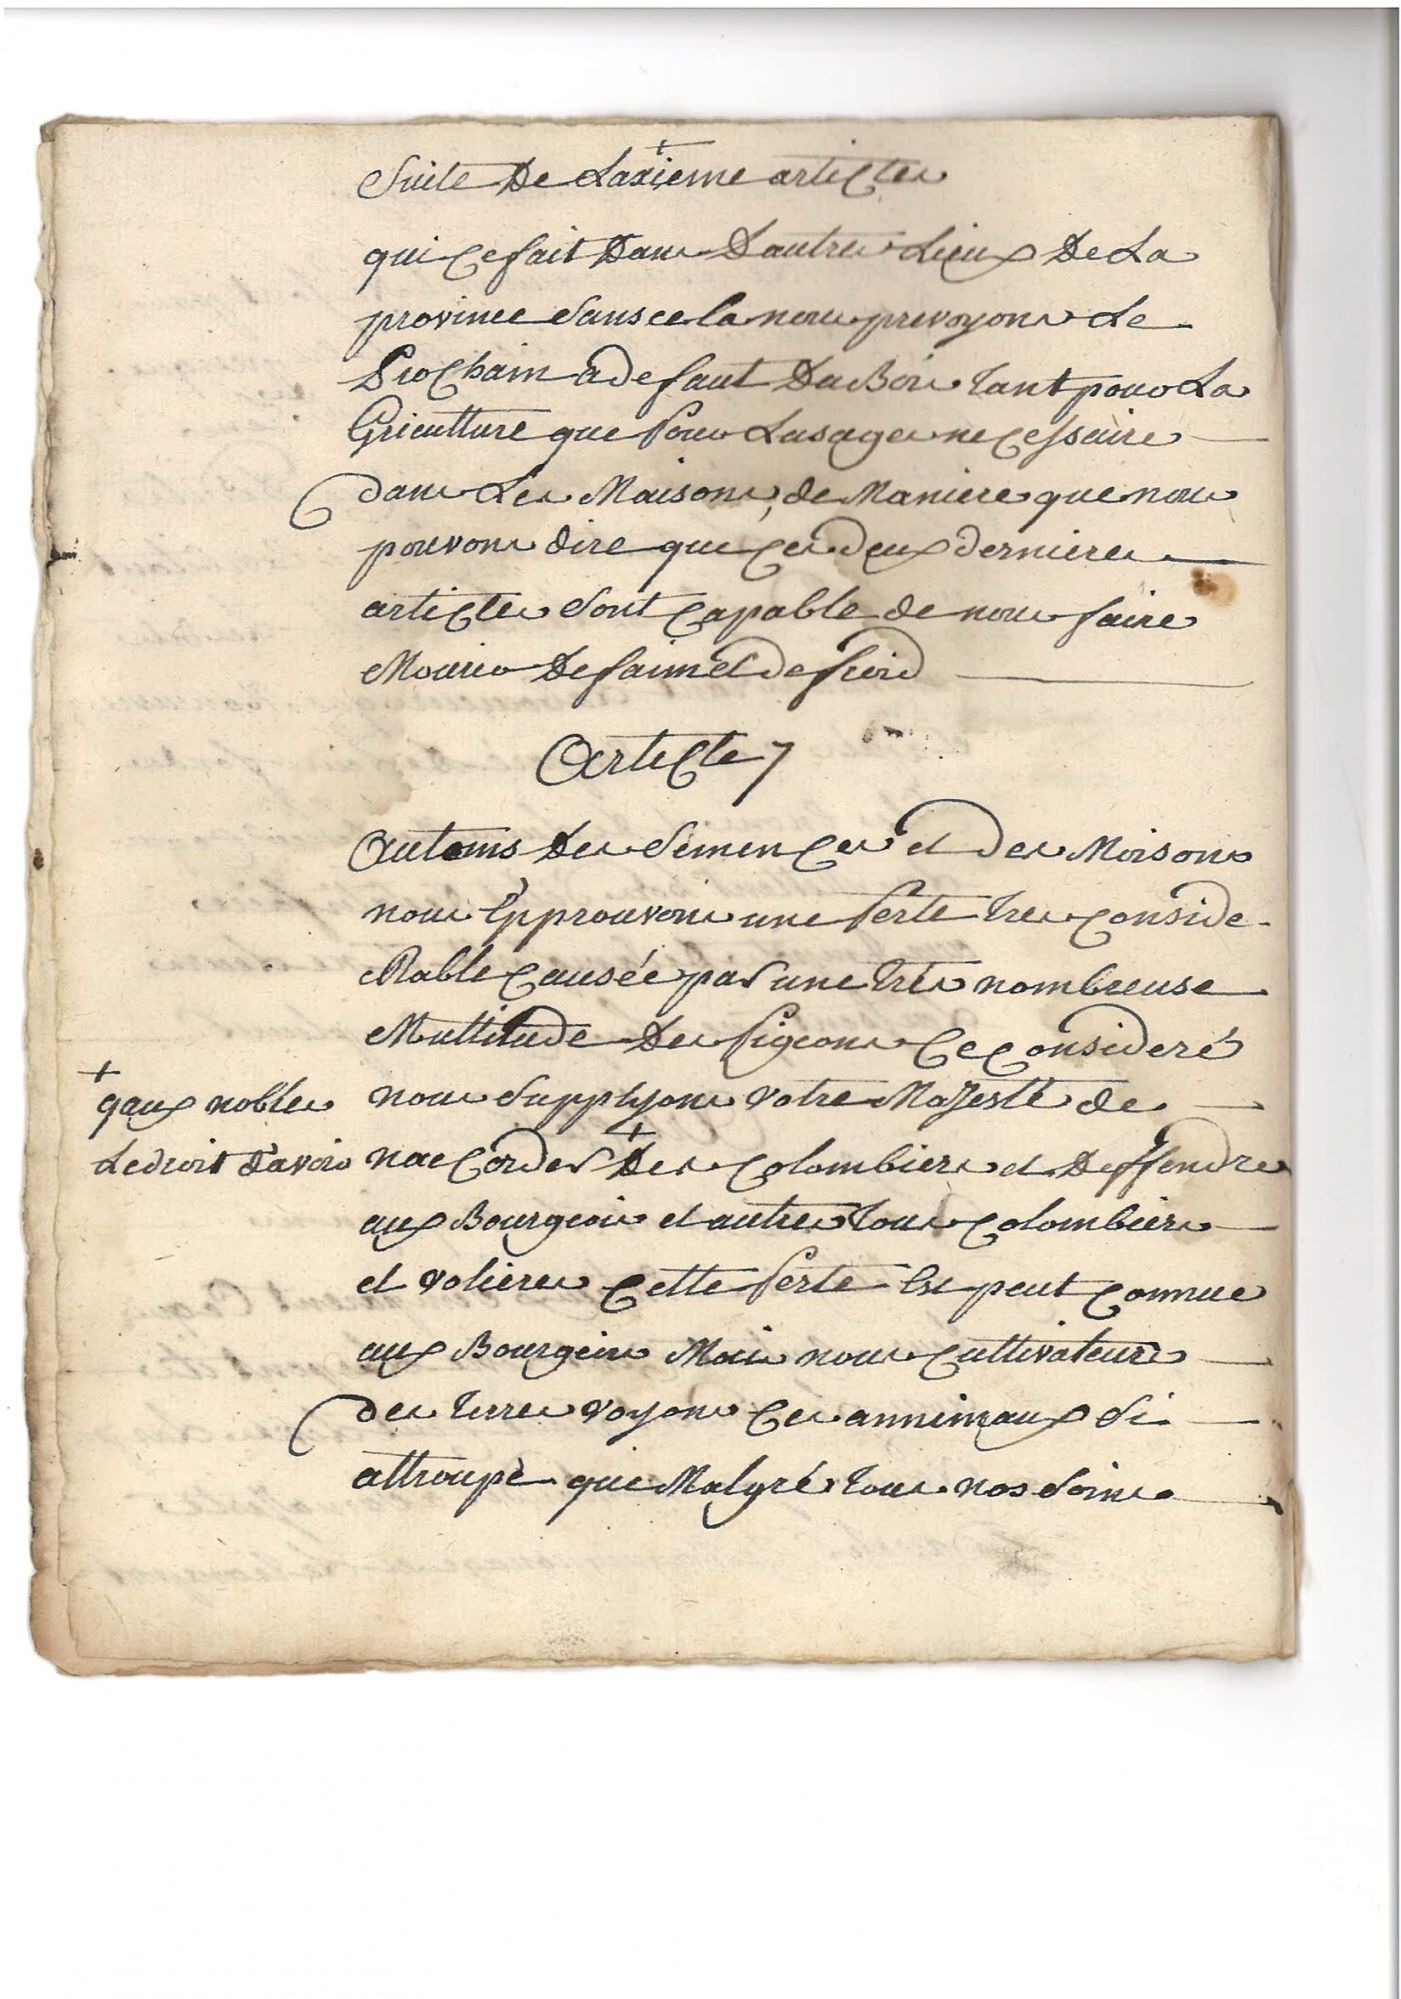 Suite De Laxieme articles
qui ce fait Dans Dautres Lieux De La
province Sans cela nous prevoyons Le
Prochain a defaut Du Bois tant pour La
Griculture que Pour Lusages necessaire
dans Les Maisons, de Maniere que nous
pouvons dire que ces deux dernieres
articles Sont capable de nous faire
Mourir De faim et de froid
Article 7
Autems Des Semences et Des Moisons
nous Epprouvons une Perte tres conside-
Rable causée par une très nombreuse
Multitude Des Pigeons ce consideré
nous Supplyons Votre Majesté de
+
qaux nobles
Le droit d'avoir
nac Corder + Des Colombiers et Deffendre
aux Bourgeois et autres tous Colombiers
et volieres cette Perte Est peut connue
aux Bourgeois Mais nous Cultivateurs
des terres voyons ces annimaux Si
attroupé que Malgré tous nos Soins